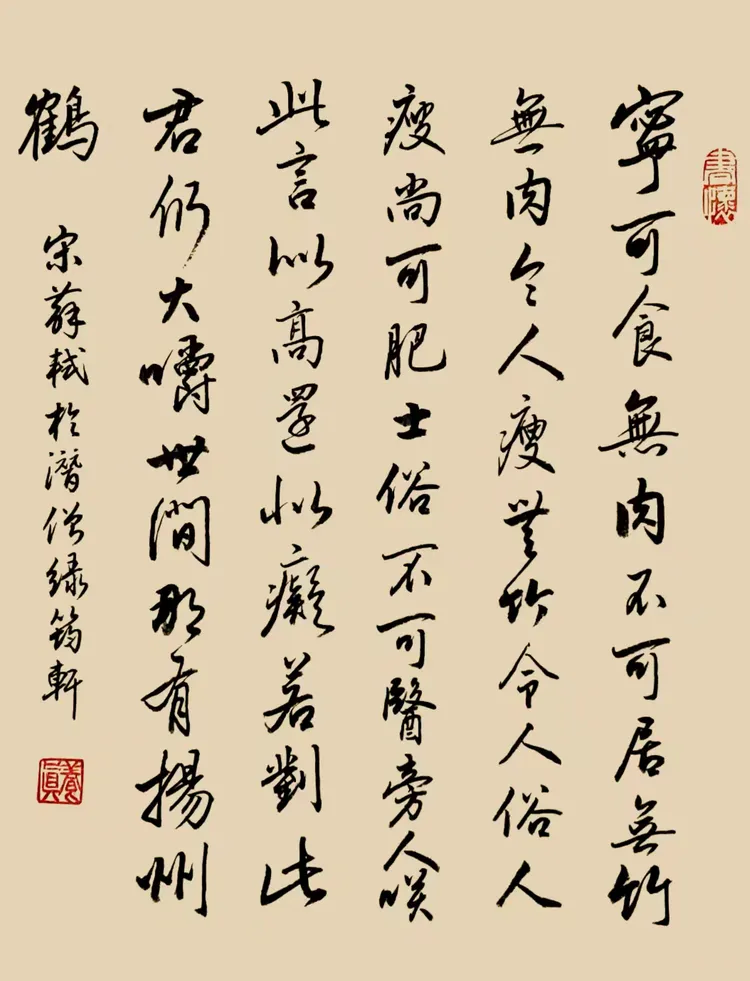 書懷
寧可食無肉不可居無竹
無肉令人瘦無竹令人俗人
瘦尚可肥士俗不可醫旁人咲
此言似高還似癡若對此
君仍大嚼世間那有揚州
鶴
宋蘇軾於潛僧綠筠軒
養真